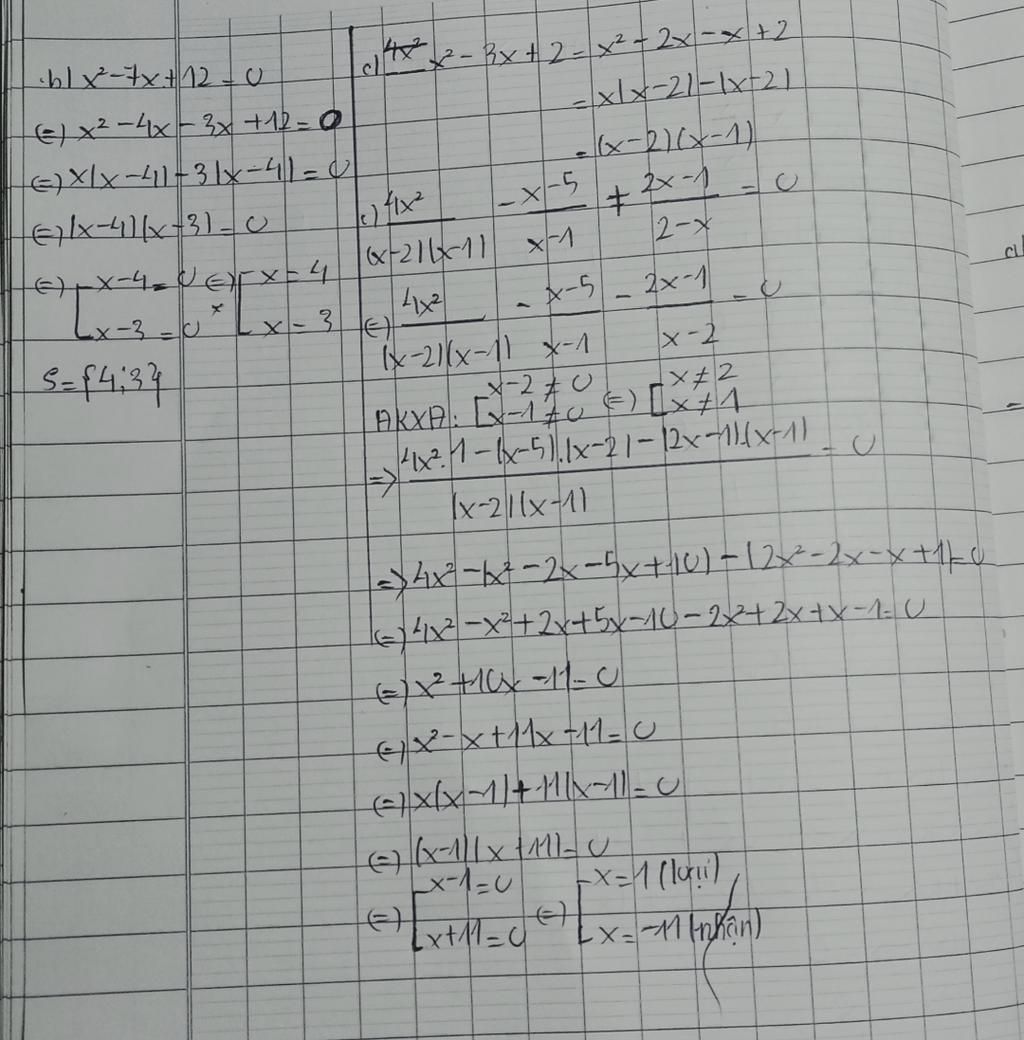 b) x² - 7x + 12 = 0
(=) x² - 4x - 3x + 12 = 0
(=) x(x-4) - 3(x-4) = 0
(=) (x-4)(x-3) = 0
(=) [x-4 = 0 (=) [x = 4
[x-3 = 0 [x = 3
S = {4;3}
c) 4x² x² - 3x + 2 = x² - 2x - x + 2
= x(x-2) - (x-2)
= (x-2)(x-1)
c) 4x²/((x-2)(x-1)) - (x-5)/(x-1) + (2x-1)/(2-x) = 0
(=) 4x²/((x-2)(x-1)) - (x-5)/(x-1) - (2x-1)/(x-2) = 0
ĐKXĐ: [x-2 ≠ 0 (=) [x ≠ 2
[x-1 ≠ 0 [x ≠ 1
=> (4x².1 - (x-5).(x-2) - (2x-1).(x-1))/((x-2)(x-1)) = 0
=> 4x² - (x² - 2x - 5x + 10) - (2x² - 2x - x + 1) = 0
(=) 4x² - x² + 2x + 5x - 10 - 2x² + 2x + x - 1 = 0
(=) x² + 10x - 11 = 0
(=) x² - x + 11x - 11 = 0
(=) x(x-1) + 11(x-1) = 0
(=) (x-1)(x+11) = 0
(=) [x-1 = 0 (=) [x = 1 (loại)
[x+11 = 0 [x = -11 (nhận)